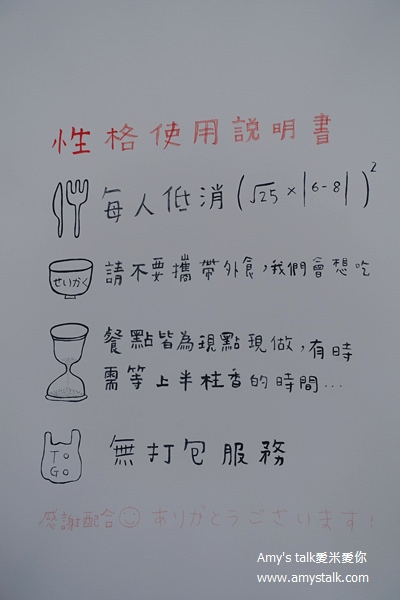 性格使用說明書
每人低消(√25×|6-8|)²
せいかく
請不要攜帶外食,我們會想吃
餐點皆為現點現做,有時
需等上半柱香的時間...
TO
GO
無打包服務
感謝配合☺ありがとうございます!
Amy's talk愛米愛你
www.amystalk.com